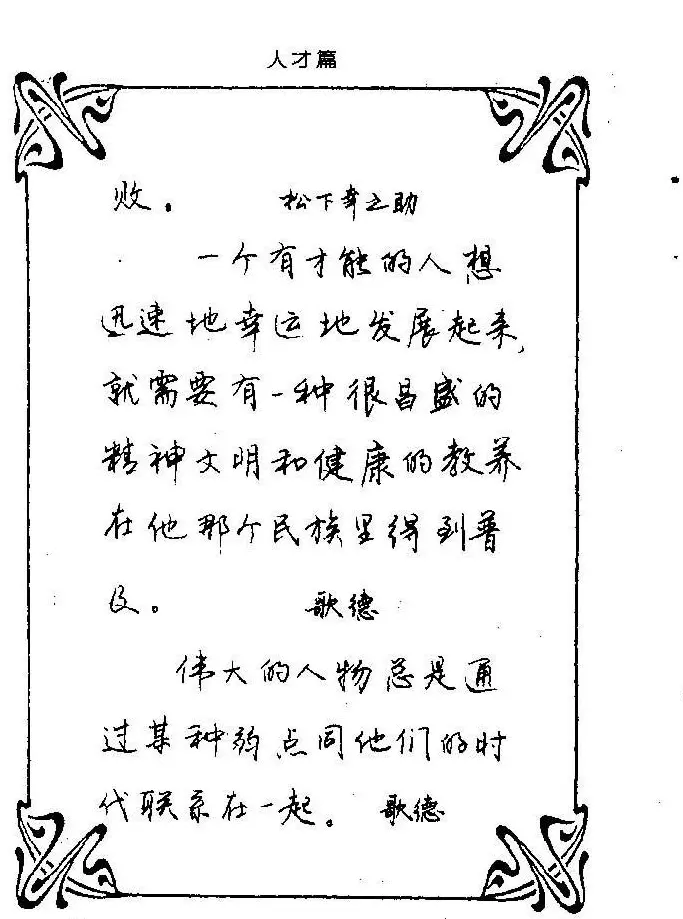 人才篇
败。 松下幸之助
一个有才能的人想
迅速地幸运地发展起来,
就需要有一种很昌盛的
精神文明和健康的教养
在他那个民族里得到普
及。 歌德
伟大的人物总是通
过某种弱点同他们的时
代联系在一起。 歌德